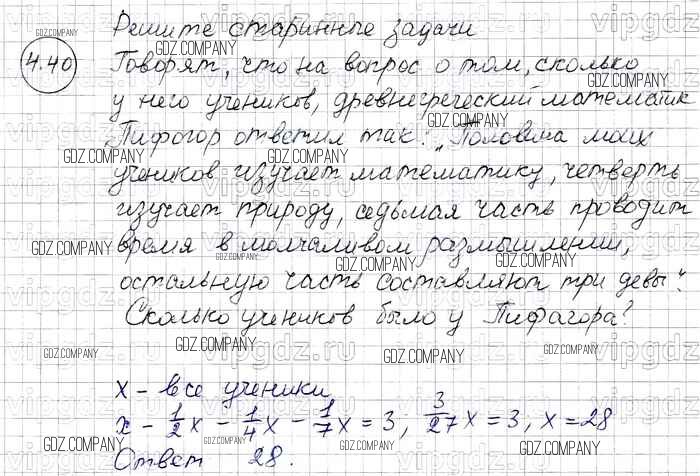 Решите старинные задачи
4.40 Говорят, что на вопрос о том, сколько
у него учеников, древнегреческий математик
Пифогор ответил так: „Половина моих
учеников изучает математику, четверть
изучает природу, седьмая часть проводит
время в молчаливом размышлении,
остальную часть составляют три девы“.
Сколько учеников было у Пифагора?
x - все ученики
x - 1/2 x - 1/4 x - 1/7 x = 3, 3/27 x = 3, x = 28
Ответ 28.
GDZ.COMPANY
vipgdz.ru